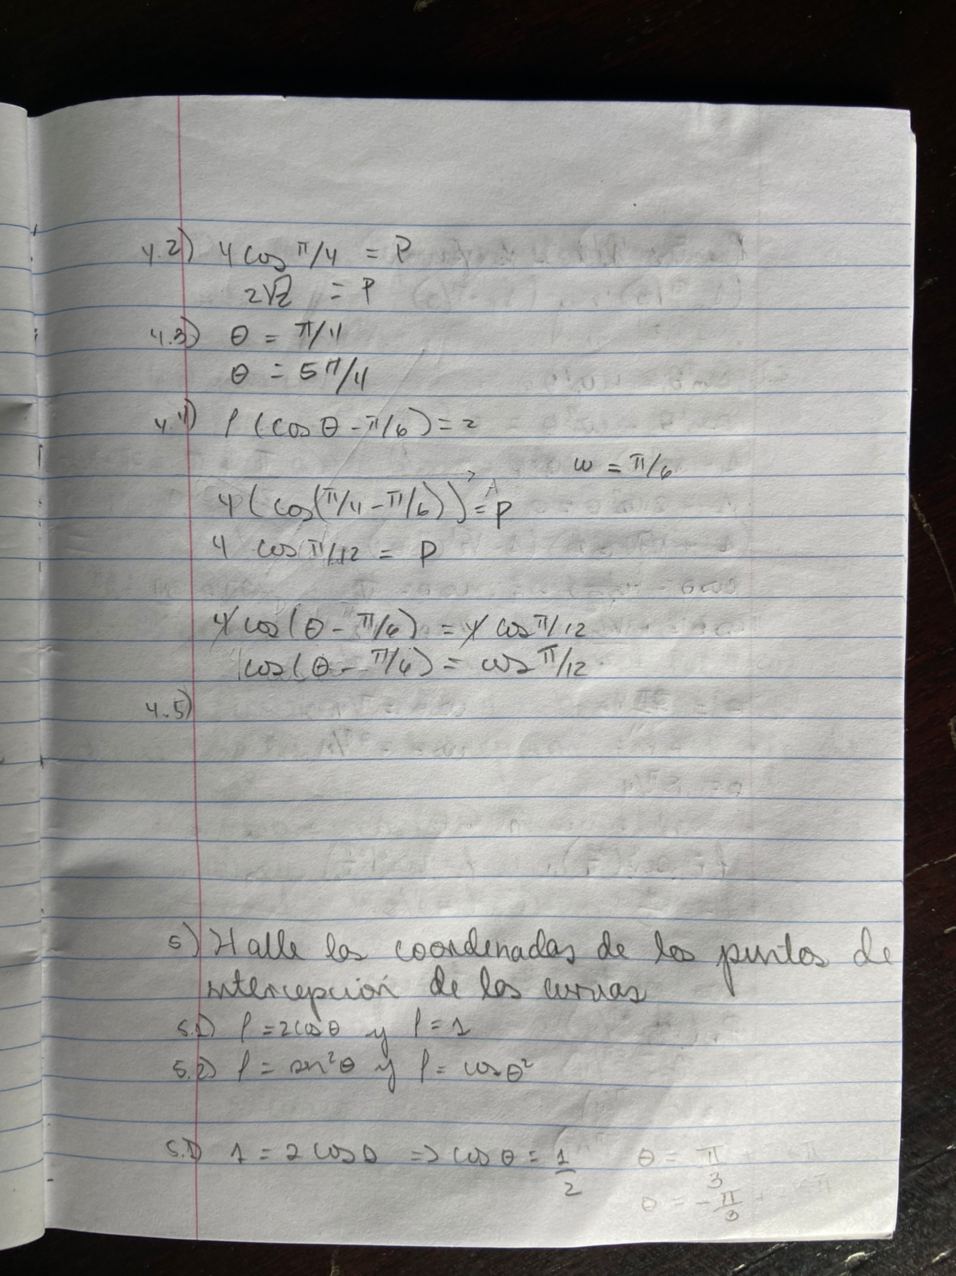 4.2) 4 cos π/4 = P
2√2 = P
4.3) θ = π/4
θ = 5π/4
4.4) ρ (cos θ - π/6) = 2
w = π/6
4 (cos(π/4 - π/6)) = P
4 cos π/12 = P
4 cos(θ - π/6) = 4 cos π/12
cos(θ - π/6) = cos π/12
4.5)
5) Halle las coordenadas de los puntos de
intercepción de las curvas
5.1) ρ = 2cos θ y ρ = 1
5.2) ρ = sen²θ y ρ = cos θ²
5.1) 1 = 2 cos θ => cos θ = 1/2 θ = π/3
θ = -π/3